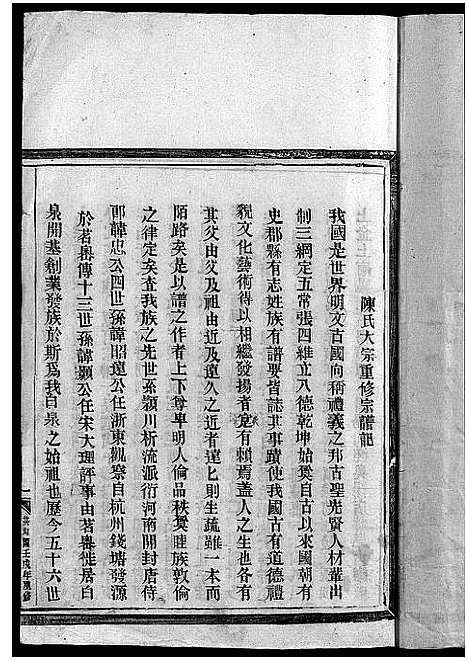 陳氏大宗重修宗譜記
我國是世界明文古國向稱禮義之邦古聖光賢人材輩出
制三綱定五常張四維立八德乾坤始奠自古以來國朝有
史郡縣有志姓族有譜要皆誌其事蹟使我國古有道德禮
貌文化藝術得以相繼發揚者寔有賴焉蓋人之生也各有
其父由父及祖由近及遠久之近者遠七則生疏雖一本而
陌路矣是以譜之作者上下尊卑明人倫品秩奠睦族敦倫
之律定矣查我族之先世系潁川析流派衍河南開封唐侍
郎諱忠公四世孫諱昭遠公任浙東觀察自杭州錢塘發源
於茗嶴傳十三世孫諱顥公任宋大理評事由茗嶴徙居白
泉開基創業發族於斯爲我白泉之始祖也歷今五十六世
一
壬戌年重修